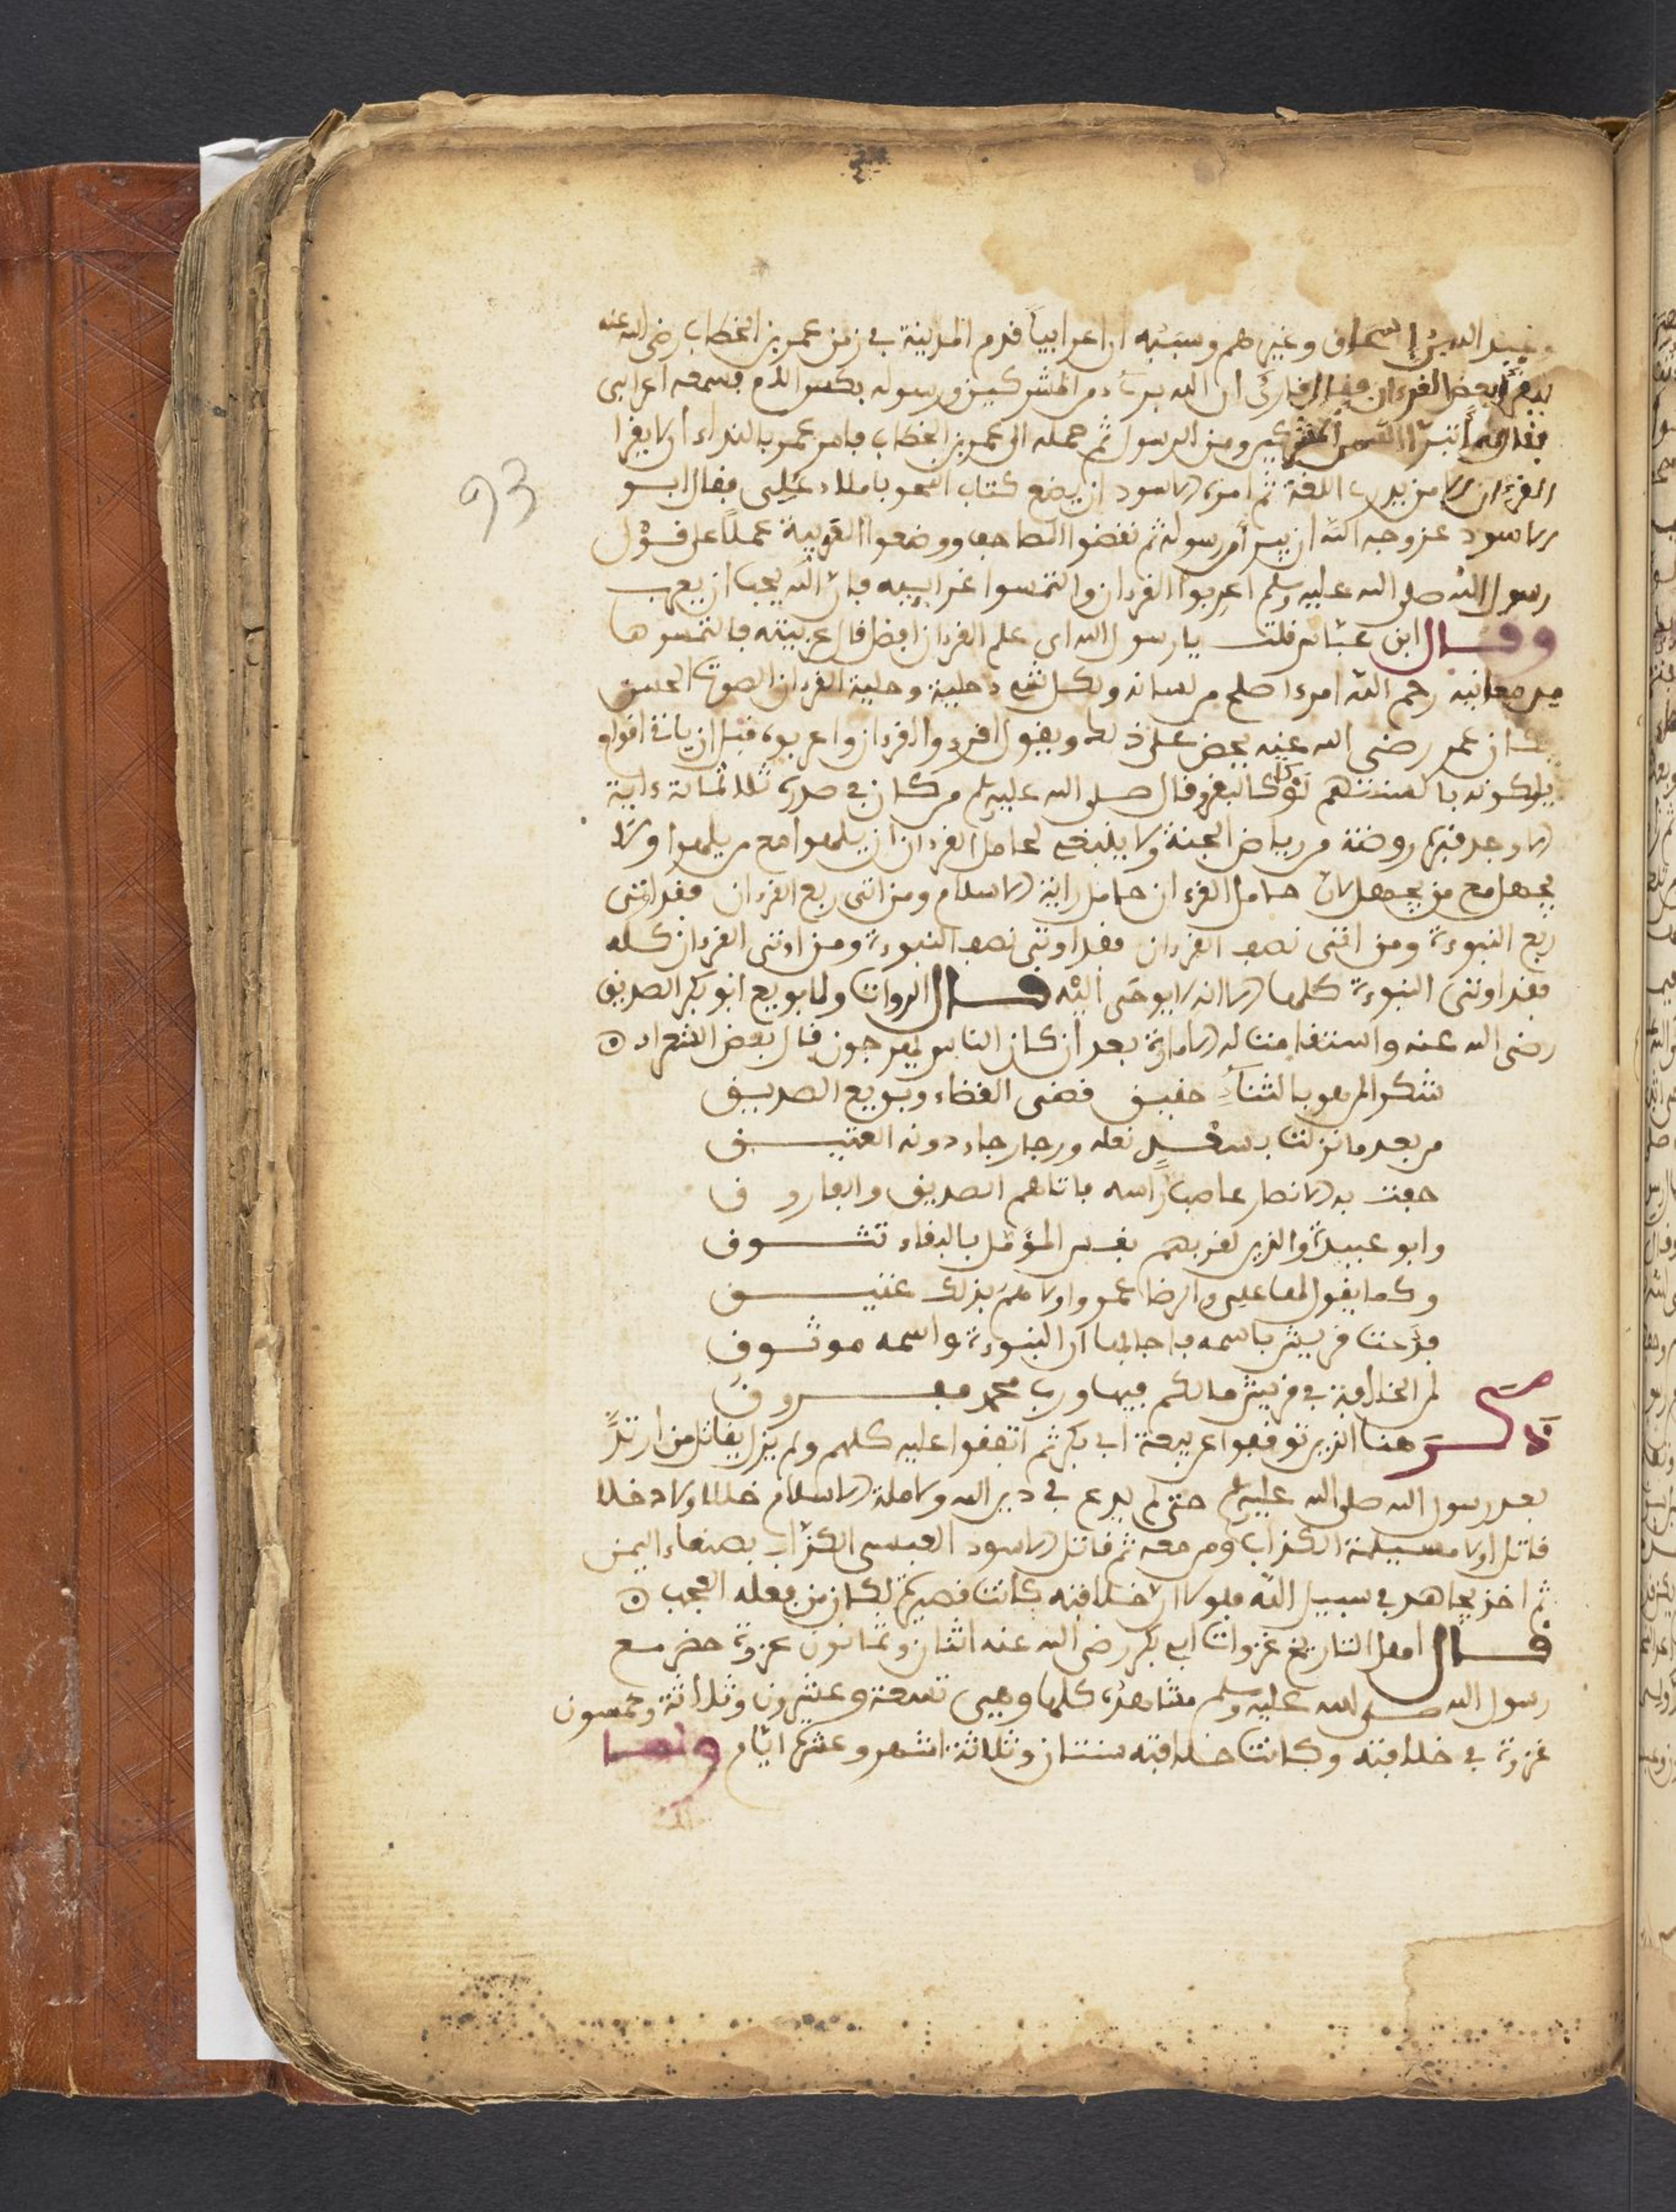 وعبد الله بن إسحاق وغيرهم وسببه ان اعرابيا قدم المدينة في زمن عمر بن الخطاب رضي الله عنه
بعض القرءان فقال القارئ ان الله برىء من المشركين ورسوله بكسر اللام فسمعه اعرابي
فقال أتبرأ الله من المشركين ومن الرسول ثم حمله الى عمر بن الخطاب فامر عمر بالنداء ان لا يقرا
القرءان الا من يدري اللغة ثم امر الاسود ان يضع كتاب النحو باملاء علي فقال ابو
الاسود عز وجه الله ان يبرأ من رسوله ثم نقضوا المصاحف ووضعوا العربية عملا على قول
رسول الله صلى الله عليه وسلم اعربوا القرءان والتمسوا غرايبه فان الله يحب ان يعرب
وقال ابن عباس قلت يا رسول الله اي علم القرءان افضل قال عربيته فالتمسوها
معانيه رحم الله امرءا اصلح من لسانه ولكل شيء حلية وحلية القرءان الصوت الحسن
كان عمر رضي الله عنه يحض على ذلك ويقول اقرءوا القرءان واعربوه قبل ان ياتي اقوام
يلوكونه بالسنتهم لوكا كالبقر وقال صلى الله عليه وسلم من كان في صدره ثلاثمائة ءاية
الا وجد قبره روضة من رياض الجنة ولا ينبغي لحامل القرءان ان يلهوا مع من يلهوا ولا
يجهل مع من يجهل لان حامل القرءان حامل راية الاسلام ومن اتى ربع القرءان فقد اوتي
ربع النبوءة ومن اتى نصف القرءان فقد اوتي نصف النبوءة ومن اوتي القرءان كله
فقد اوتي النبوءة كلها الا انه لا يوحى اليه قال الروات ولما بويع ابو بكر الصديق
رضي الله عنه واستقامت له الامارة بعد ان كان الناس يموجون قال بعض الشعراء
شكرا لمن هو بالثناء حقيق قضي القضاء وبويع الصديق
من بعد ما نزلت بسعد نعله ورجا رجاء دونه العيوق
حفت به الانصار عاصب راسه فاتاهم الصديق والفاروق
وابو عبيدة والذين لقربهم نفس المؤمل بالبقاء تشوف
وكما يقول لها علي والرضا عمر واولاهم بذلك عتيق
فدعت قريش باسمه فاجابها ان النبوءة واسمه موثوق
لمر الخلافة في قريش مالكم فيها ورب محمد معروف
هنا الذين توقفوا عن بيعة ابي بكر ثم اتفقوا عليه كلهم ولم يزل يقاتل من ارتد
بعد رسول الله صلى الله عليه وسلم حتى لم يدع في دين الله وكاملة الاسلام خللا ولا دخلا
قاتل اولا مسيلمة الكذاب ومن معه ثم قاتل الاسود العبسي الكذاب بصنعاء اليمن
ثم اخذ يجاهد في سبيل الله فلولا ان خلافته كانت قصيرة لكان من فعله العجب
قال اهل التاريخ غزوات ابي بكر رضي الله عنه اثنان وثمانون غزوة حضر مع
رسول الله صلى الله عليه وسلم مشاهده كلها وهي تسعة وعشرون وثلاثة وخمسون
غزوة في خلافته وكانت خلافته سنتان وثلاثة اشهر وعشرة ايام ولما
93